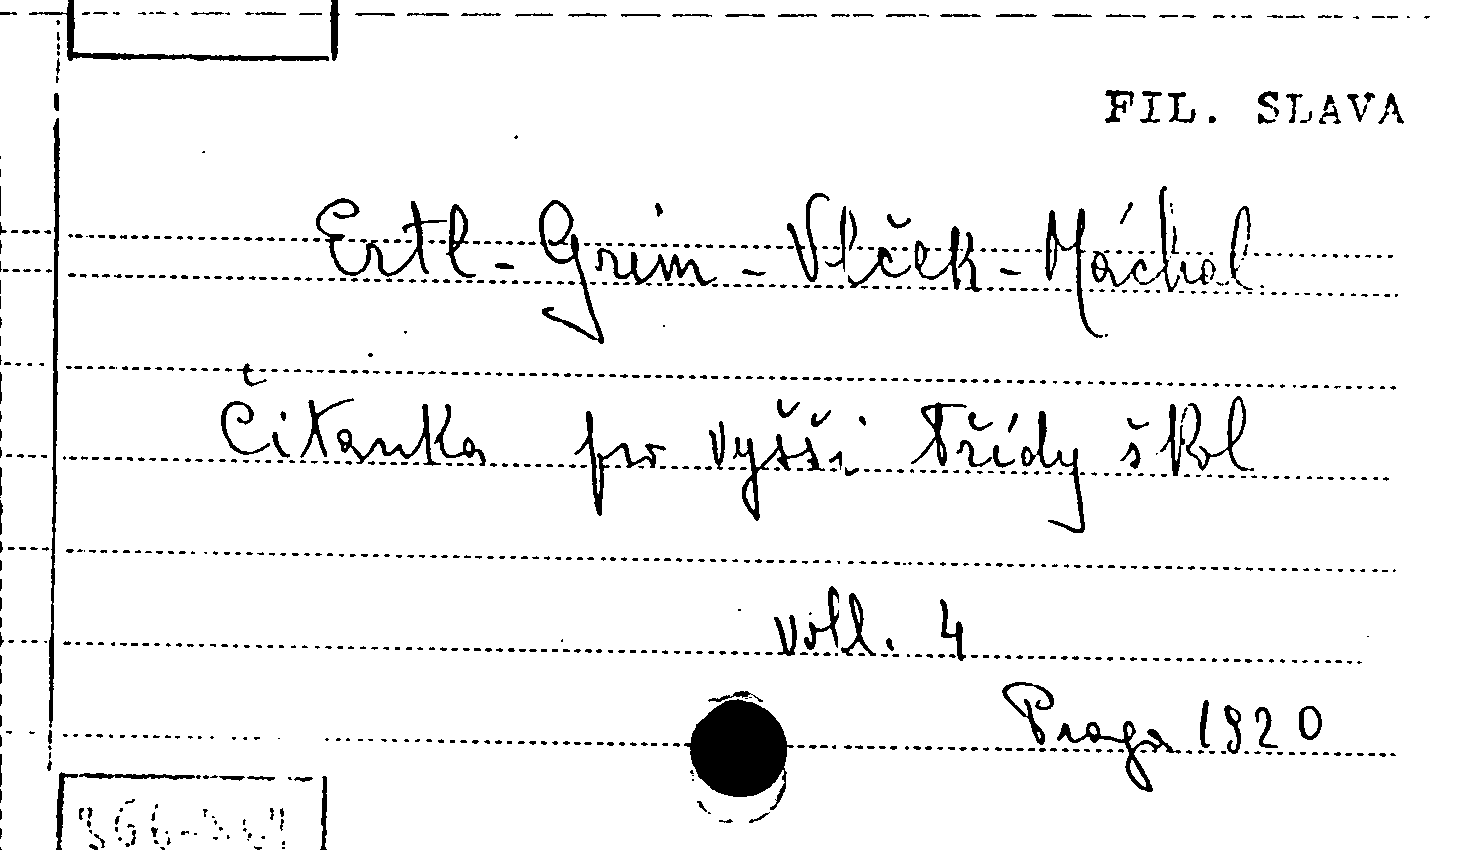 FIL. SLAVA
Ertl - Grim - Vlček - Máchal
Čitanka pro vyšší třídy škol
voll. 4
Praga 1920